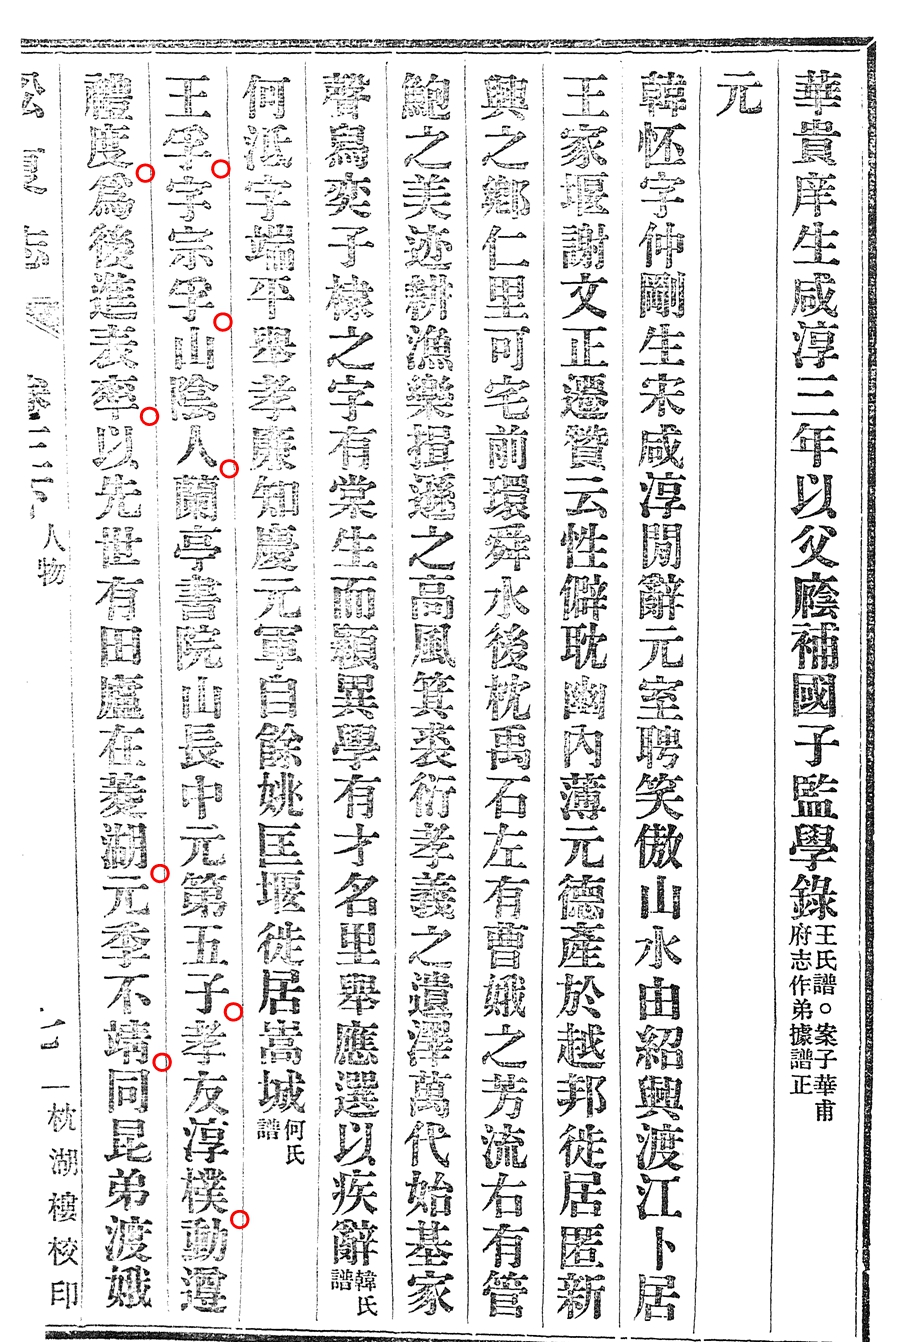 華貴庠生咸淳三年以父廕補國子監學錄王氏譜○案子華甫府志作弟據譜正
元
韓怀字仲剛生宋咸淳閒辭元室聘笑傲山水由紹興渡江卜居
王家堰謝文正遷贊云性僻耽幽內薄元德產於越邦徙居匿新
興之鄉仁里可宅前環舜水後枕禹石左有曹娥之芳流右有管
鮑之美迹耕漁樂揖遜之高風箕裘衍孝義之遺澤萬代始基家
聲烏奕子榛之字有棠生而穎異學有才名里舉應選以疾辭韓氏譜
何泜字端平舉孝廉知慶元軍自餘姚匡堰徙居嵩城何氏譜
王孚字宗孚山陰人蘭亭書院山長中元第五子孝友淳樸動遵
禮度爲後進表率以先世有田廬在菱湖元季不靖同昆弟渡娥
松夏志 卷三下 人物 枕湖樓校印